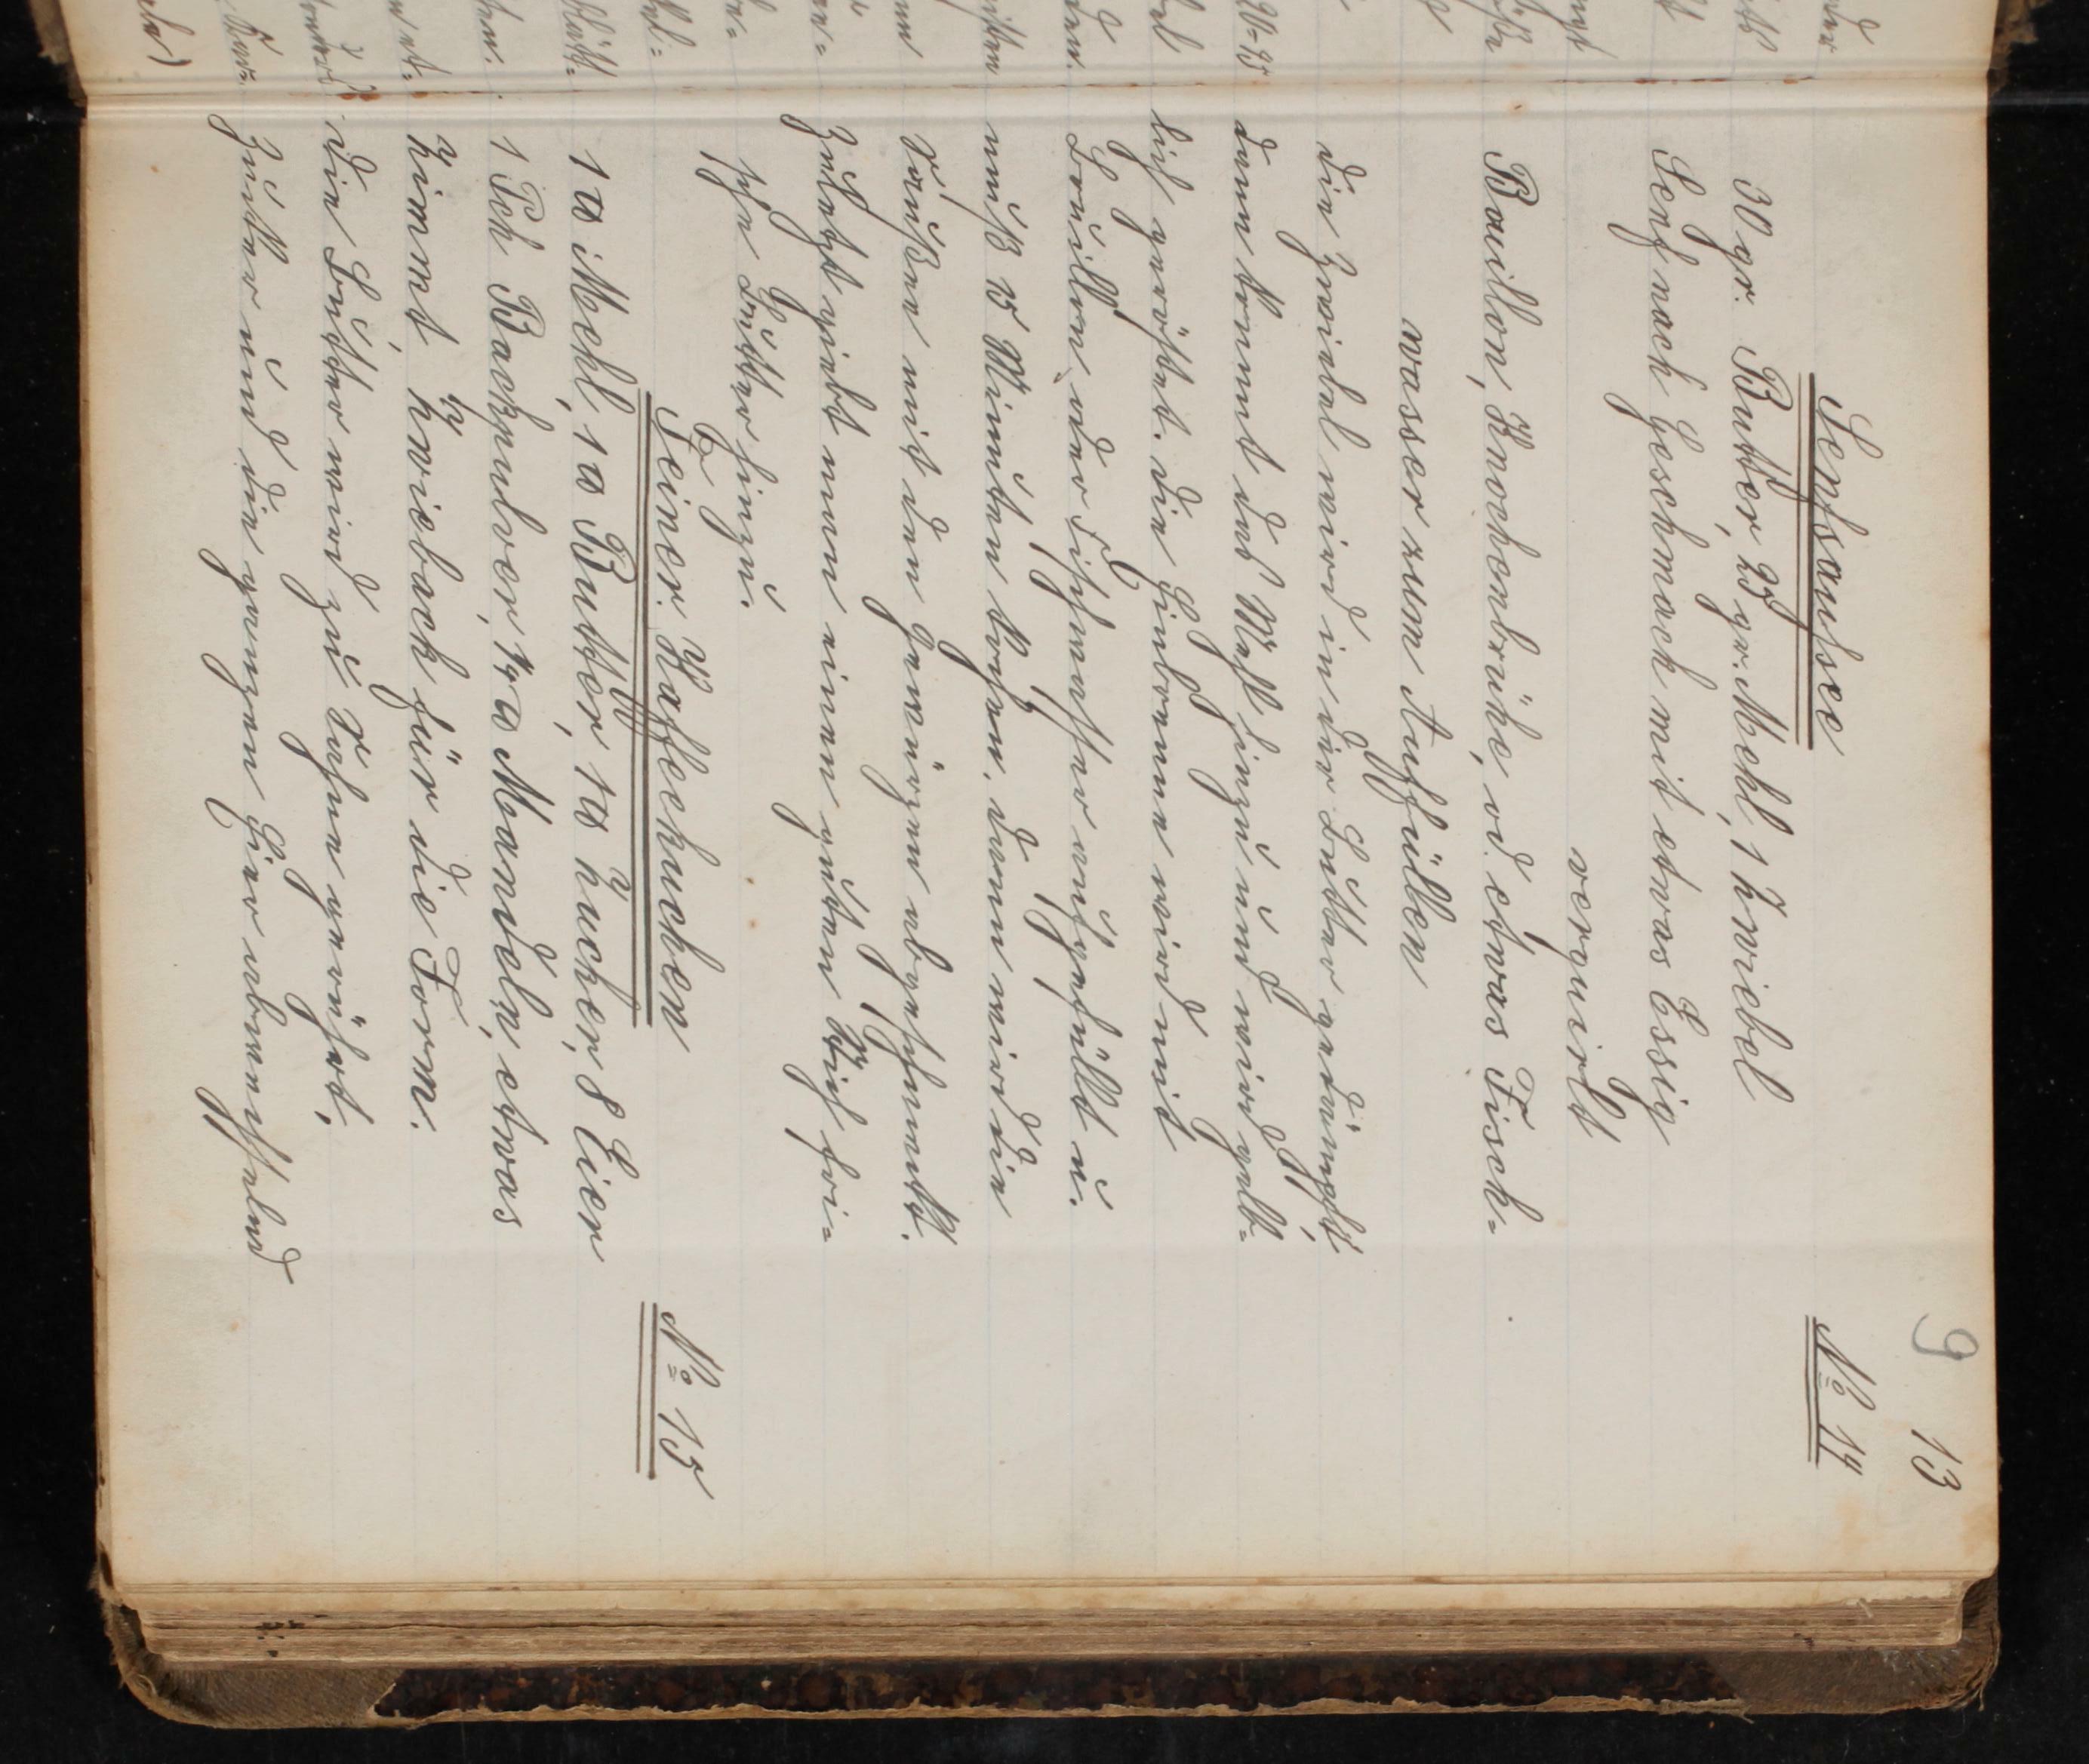 9 13
Senfsausse
№ 14
30 gr. Butter, 25 gr. Mehl, 1 Zwiebel
Senf nach Geschmack mit etwas Essig
verquirlt
Bouillon, Knochenbrühe, od. etwas Fisch-
wasser zum Auffüllen
die Zwiebel wird in der Butter gedämpft,
dann kommt das Mehl hinzu und wird gelb-
lich geröstet. die Einbrenne wird mit
Brühe, oder Fischwasser aufgefüllt u.
muß 15 Minuten kochen, dann wird die
Sauße mit den Gewürzen abgeschmeckt.
Zuletzt giebt man einen guten Stich fri-
sche Butter hinzu.
Feiner Kaffeekuchen
№ 15
1 ℔ Mehl, 1 ℔ Butter, 1 ℔ Zucker, 8 Eier
1 Pck Backpulver, 1/4 ℔ Mandeln, etwas
Zimmt, Zwieback für die Form.
die Butter wird zu Sahne gerührt,
Zucker und die ganzen Eier abwechselnd